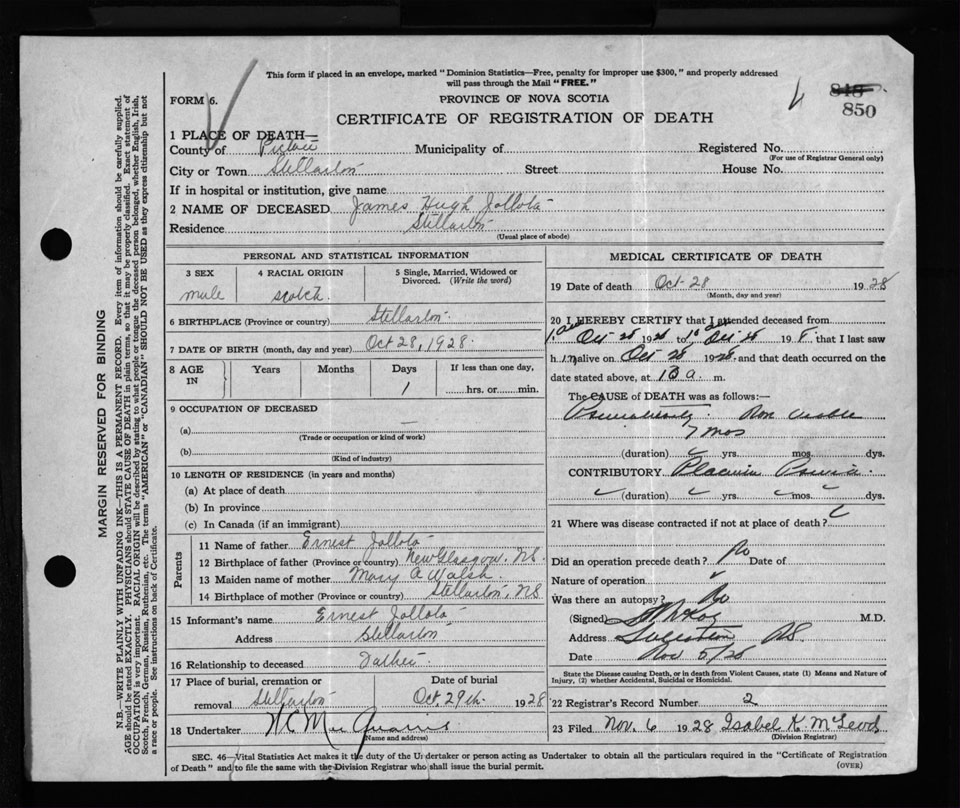 This form if placed in an envelope, marked "Dominion Statistics—Free, penalty for improper use $300," and properly addressed
will pass through the Mail "FREE."
FORM 6.
PROVINCE OF NOVA SCOTIA
848
850
CERTIFICATE OF REGISTRATION OF DEATH
1 PLACE OF DEATH—
County of Pictou Municipality of Registered No.
(For use of Registrar General only)
City or Town Stellarton Street House No.
If in hospital or institution, give name
2 NAME OF DECEASED James Hugh Jollota
Residence Stellarton
(Usual place of abode)
PERSONAL AND STATISTICAL INFORMATION
3 SEX 4 RACIAL ORIGIN 5 Single, Married, Widowed or
Divorced. (Write the word)
male scotch
6 BIRTHPLACE (Province or country) Stellarton
7 DATE OF BIRTH (month, day and year) Oct 28, 1928
8 AGE IN Years Months Days If less than one day,
1 hrs. or min.
9 OCCUPATION OF DECEASED
(a) —
(Trade or occupation or kind of work)
(b)
(Kind of industry)
10 LENGTH OF RESIDENCE (in years and months)
(a) At place of death
(b) In province
(c) In Canada (if an immigrant)
Parents
11 Name of father Ernest Jollota
12 Birthplace of father (Province or country) New Glasgow, NS
13 Maiden name of mother Mary A Walsh
14 Birthplace of mother (Province or country) Stellarton, NS
15 Informant's name Ernest Jollota
Address Stellarton
16 Relationship to deceased Father
17 Place of burial, cremation or removal Stellarton Date of burial Oct. 29th 1928
18 Undertaker
(Name and address)
MEDICAL CERTIFICATE OF DEATH
19 Date of death Oct-28 1928
(Month, day and year)
20 I HEREBY CERTIFY that I attended deceased from
Oct 28 1928 to Oct 28 1928 that I last saw
him alive on Oct 28 1928, and that death occurred on the
date stated above, at 10 a. m.
The CAUSE of DEATH was as follows:—
Prematurity Non viable
7 mos
(duration) yrs. mos. dys.
CONTRIBUTORY Placenta
(duration) yrs. mos. dys.
21 Where was disease contracted if not at place of death?
Did an operation precede death? No Date of
Nature of operation
Was there an autopsy? No
(Signed) M.D.
Address NS
Date Nov 5/28
State the Disease causing Death, or in death from Violent Causes, state (1) Means and Nature of Injury, (2) whether Accidental, Suicidal or Homicidal.
22 Registrar's Record Number 2
23 Filed Nov. 6 1928 Isabel K. McLeod
(Division Registrar)
SEC. 46—Vital Statistics Act makes it the duty of the Undertaker or person acting as Undertaker to obtain all the particulars required in the "Certificate of Registration
of Death" and to file the same with the Division Registrar who shall issue the burial permit. (OVER)
MARGIN RESERVED FOR BINDING
N.B.—WRITE PLAINLY WITH UNFADING INK—THIS IS A PERMANENT RECORD. Every item of information should be carefully supplied.
AGE should be stated EXACTLY. PHYSICIANS should STATE CAUSE OF DEATH in plain terms, so that it may be properly classified. Exact statement of
OCCUPATION is very important. RACIAL ORIGIN will be described by stating to what people or tongue the deceased person belonged, whether English, Irish,
Scotch, French, German, Russian, Ruthenian, etc. The terms "AMERICAN" or "CANADIAN" SHOULD NOT BE USED as they express citizenship but not
a race or people. See instructions on back of Certificate.